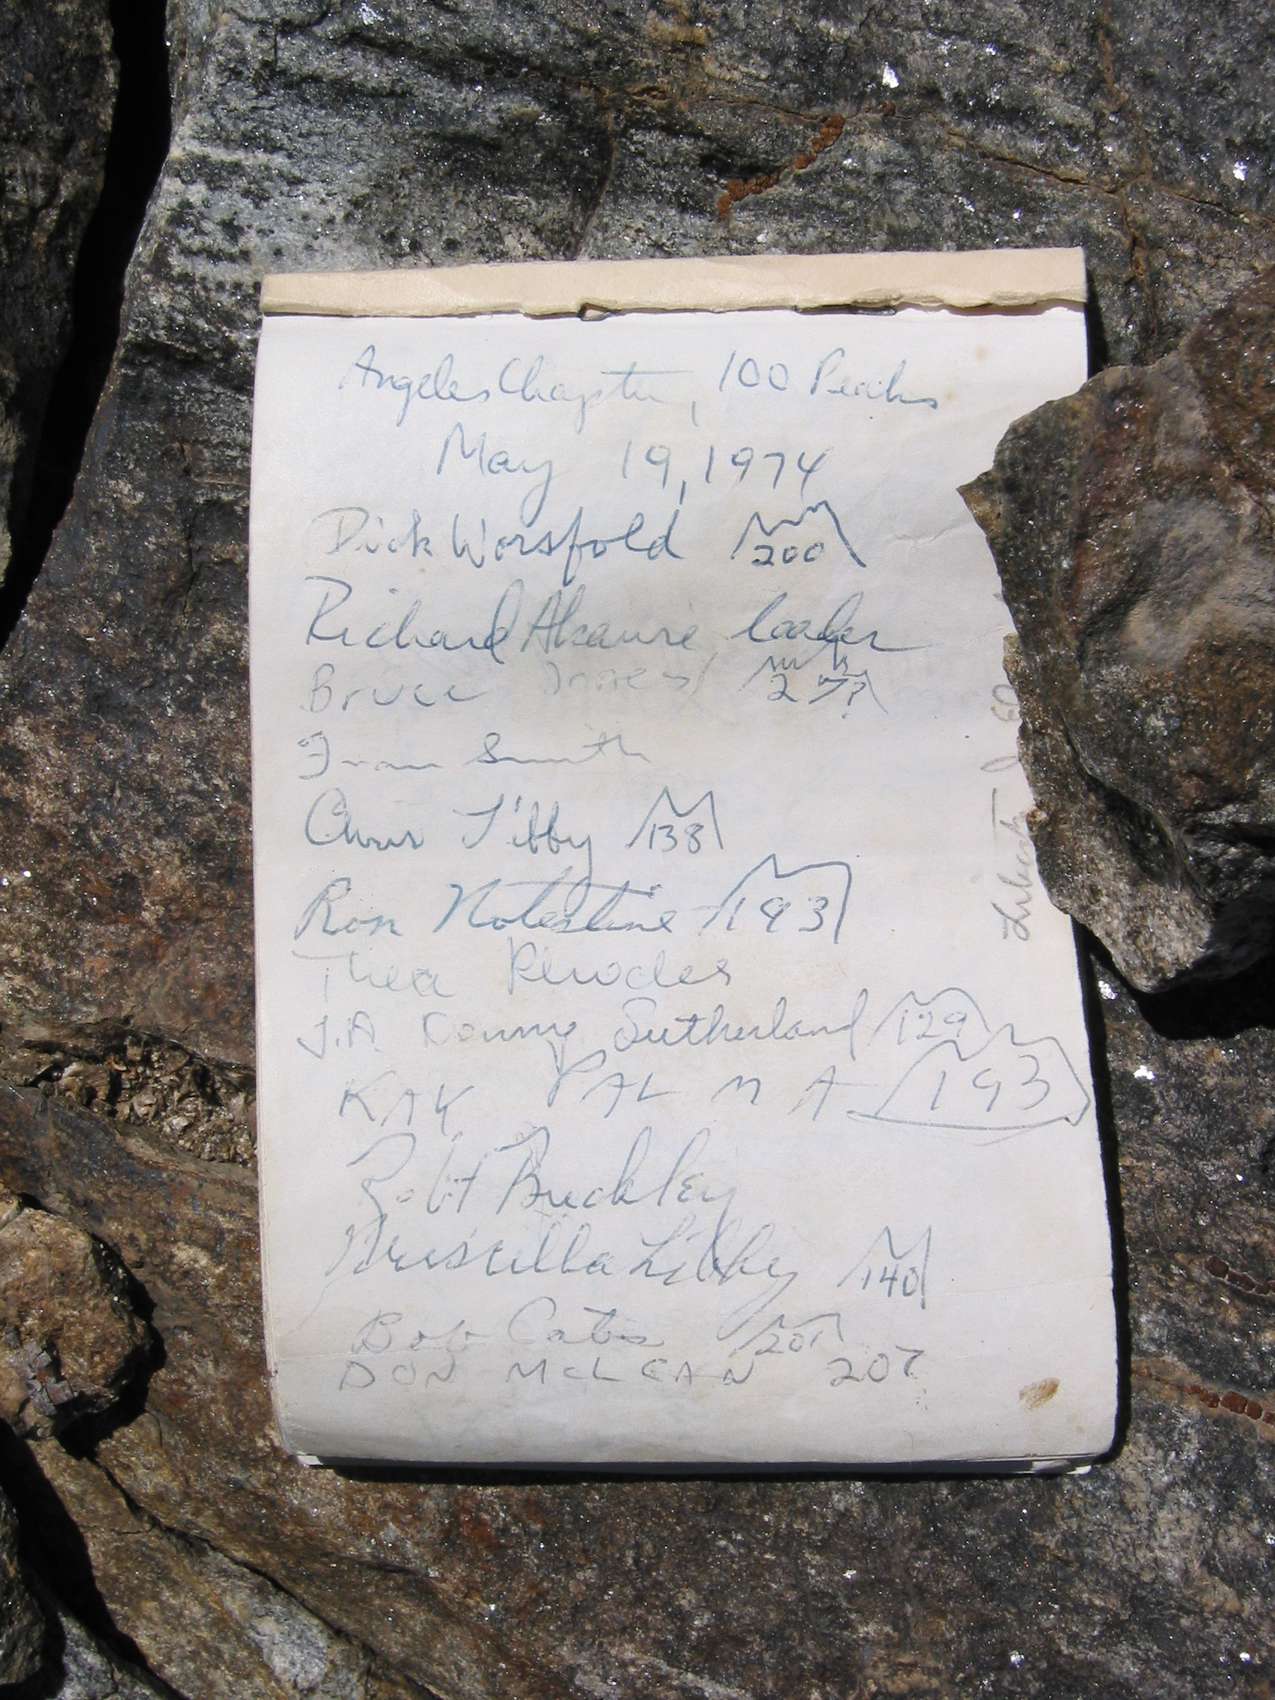 Angeles Chapter, 100 Peaks
May 19, 1974
Dick Worsfold 200
Richard leader
Bruce 2
Smith
Libby 138
Ron Notestine 193
Thea Rhodes
J.A. Sutherland 129
KAY PALMA 193
Robt Buckley
Priscilla Libby 140
Bob Cates 201
DON McLEAN 207